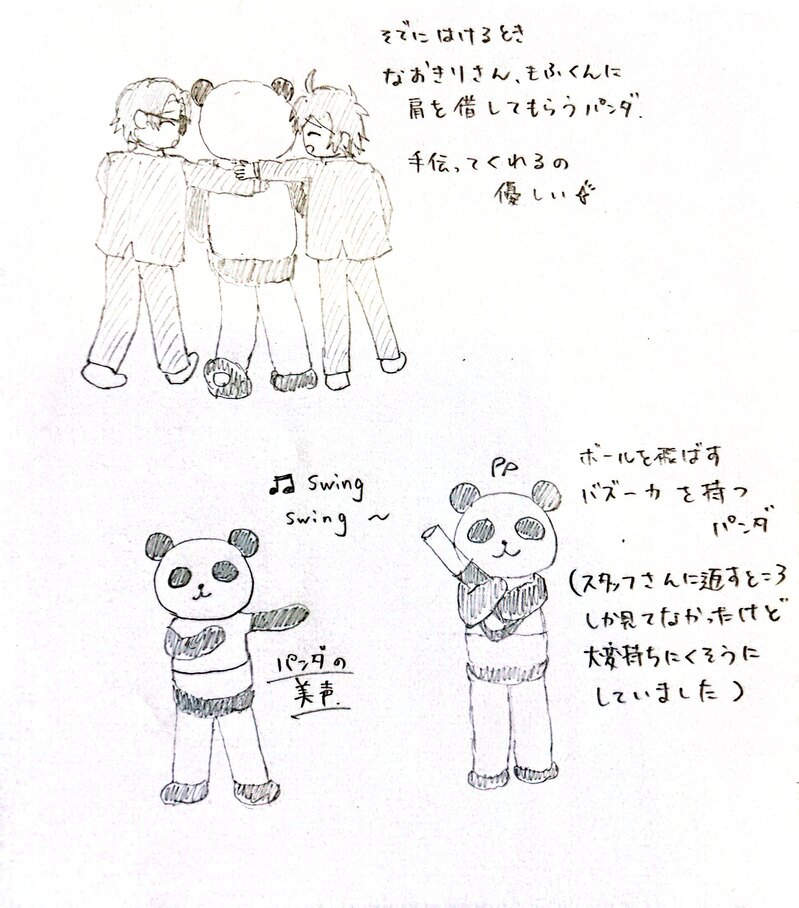 そでにはけるとき
なおきりさん、もふくんに
肩を借してもらうパンダ.
手伝ってくれるの
優しい
♫ swing
swing ～
パンダの
美声.
ボールを飛ばす
バズーカを持つ
パンダ
(スタッフさんに返すところ
しか見てなかったけど
大変持ちにくそうに
していました)